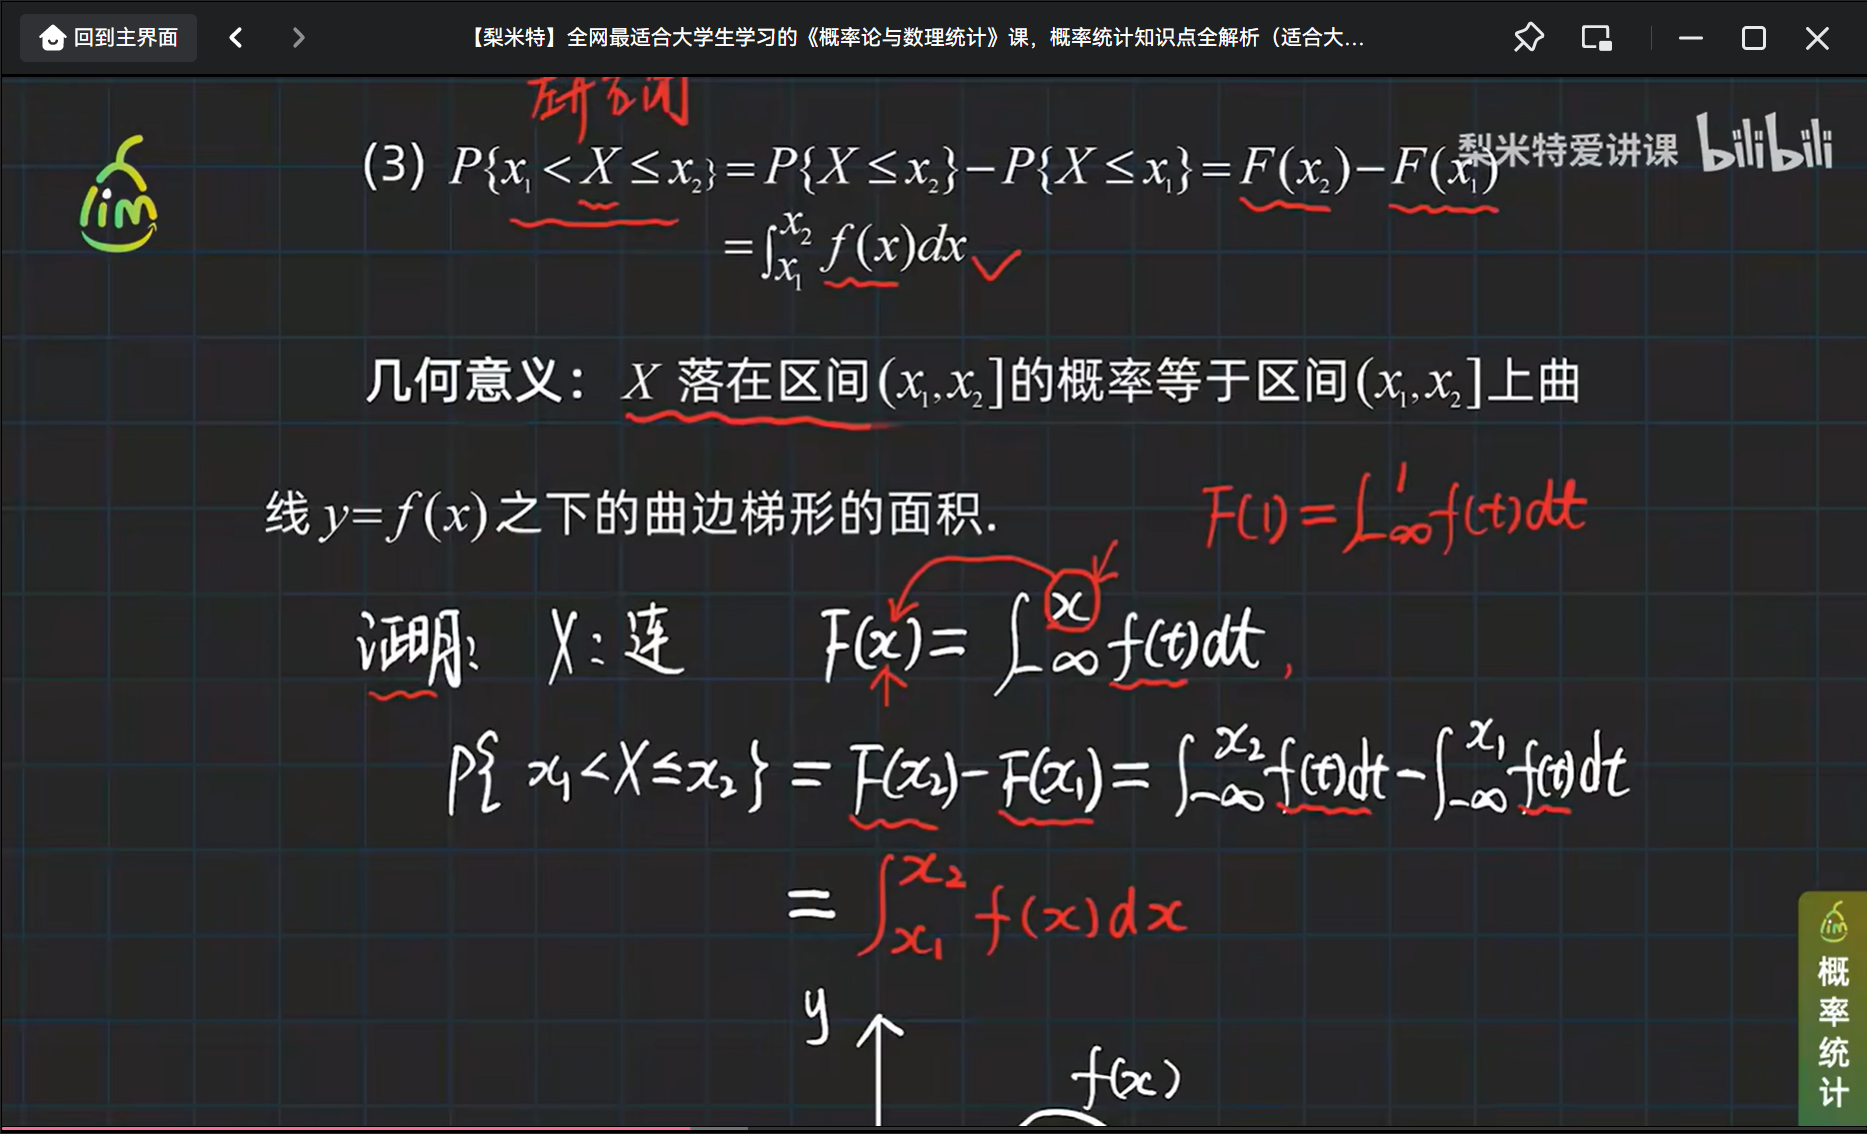 回到主界面
【梨米特】全网最适合大学生学习的《概率论与数理统计》课，概率统计知识点全解析（适合大...
左开右闭
梨米特爱讲课 bilibili
lim
(3) P{x₁ < X ≤ x₂} = P{X ≤ x₂} − P{X ≤ x₁} = F(x₂) − F(x₁)
= ∫_{x₁}^{x₂} f(x)dx
几何意义： X 落在区间(x₁,x₂]的概率等于区间(x₁,x₂]上曲
线 y=f(x)之下的曲边梯形的面积.
F(1) = ∫_{-∞}^{1} f(t)dt
证明: X:连 F(x) = ∫_{-∞}^{x} f(t)dt ,
P{ x₁<X≤x₂ } = F(x₂) - F(x₁) = ∫_{-∞}^{x₂} f(t)dt - ∫_{-∞}^{x₁} f(t)dt
= ∫_{x₁}^{x₂} f(x)dx
y
f(x)
lim
概率统计